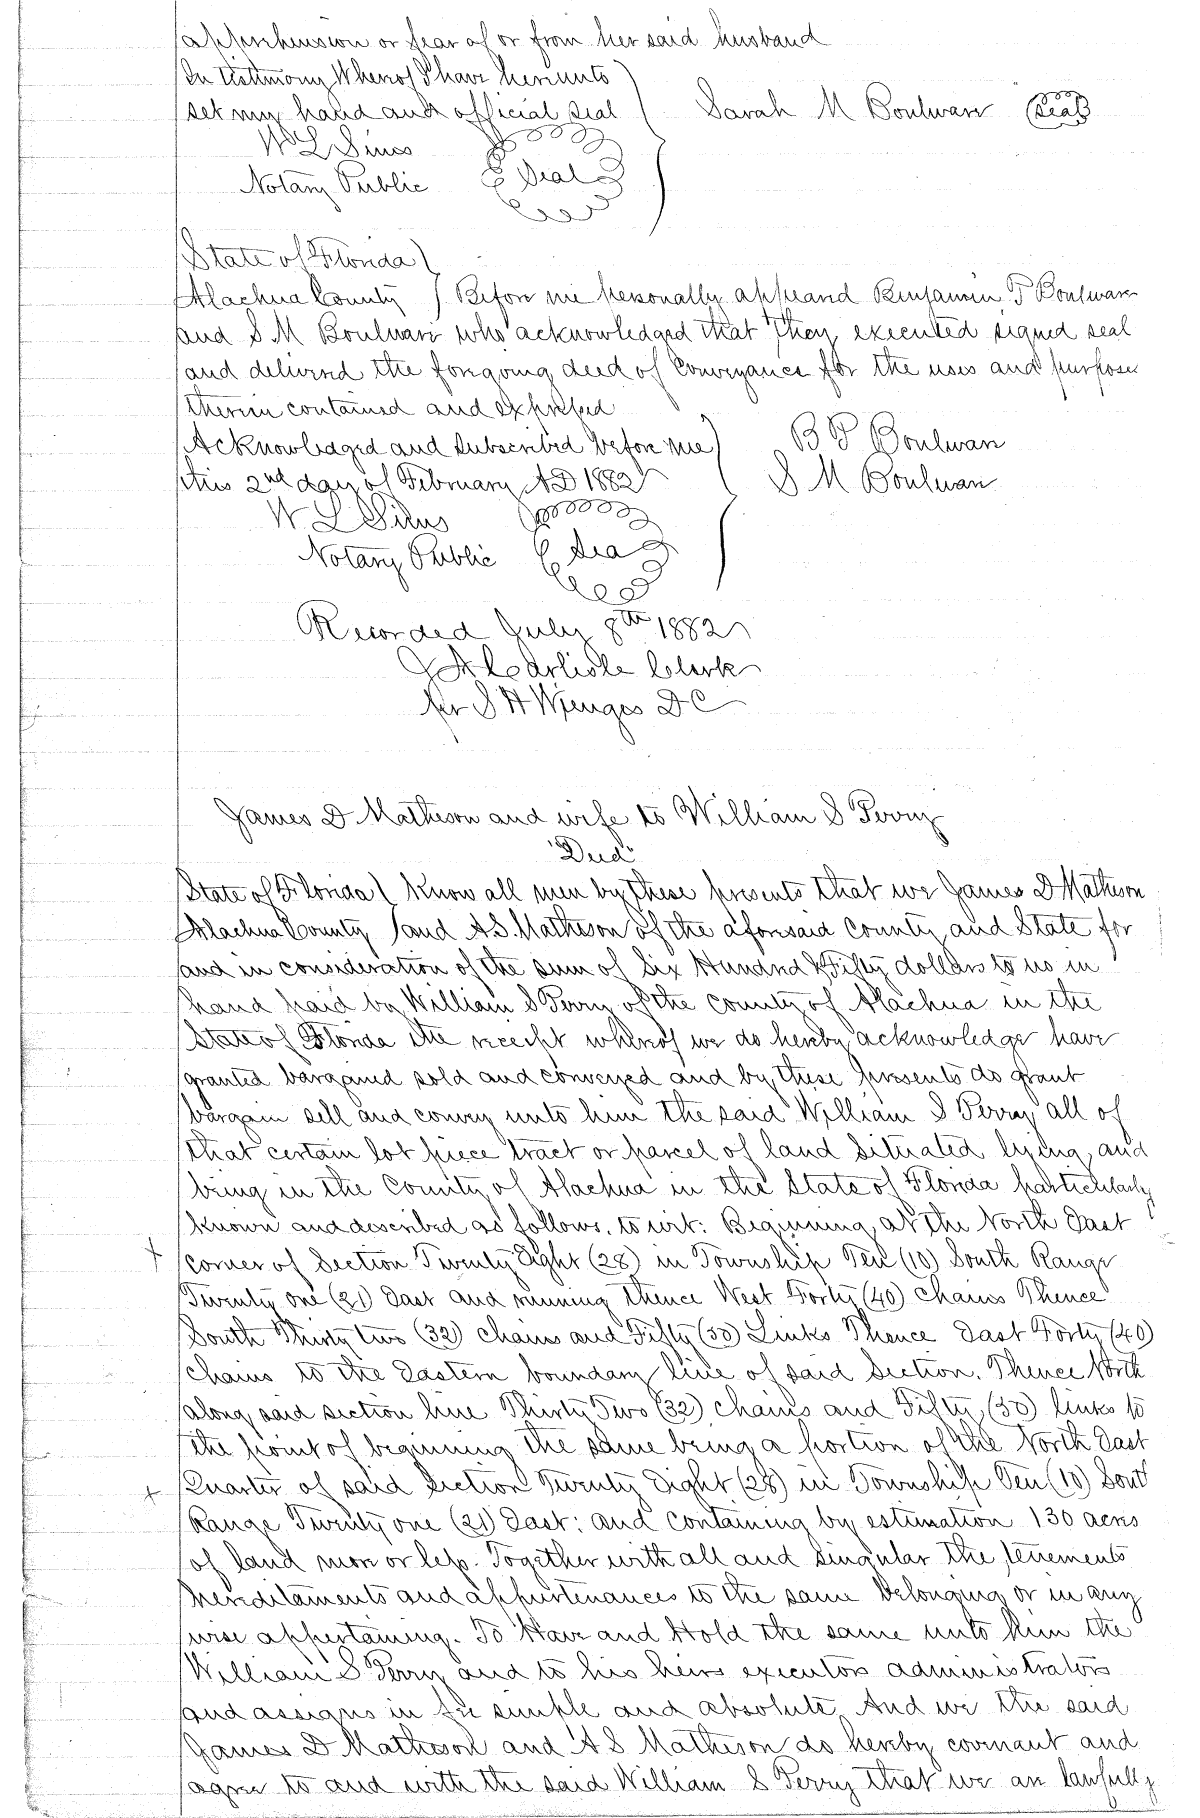 apprehension or fear of or from her said husband
In testimony Whereof I have hereunto
set my hand and official seal Sarah M Boulware Seal
W L Sims
Notary Public Seal
State of Florida
Alachua County Before me personally appeard Benjamin T Boulware
and S M Boulware who acknowledged that they executed signed seal
and deliverd the foregoing deed of Conveyance for the uses and purposes
therein contained and expressed
Acknowledged and Subscribed before me B T Boulware
this 2nd day of February AD 1882 S M Boulware
W L Sims
Notary Public Seal
Recorded July 8th 1882
J A Carlisle Clerk
per S H Wienges D C
James D Matheson and wife to William S Perry
"Deed"
State of Florida Know all men by these presents that we James D Matheson
Alachua County and A.S. Matheson of the aforesaid County and State for
and in consideration of the sum of Six Hundred & Fifty dollars to us in
hand paid by William S Perry of the County of Alachua in the
State of Florida the receipt whereof we do hereby acknowledge have
granted bargained sold and conveyed and by these presents do grant
bargain sell and convey unto him the said William S Perry all of
that certain lot piece tract or parcel of land Situated lying and
being in the County of Alachua in the State of Florida particularly
known and described as follows. to wit: Beginning at the North East
x corner of Section Twenty Eight (28) in Township Ten (10) South Range
Twenty one (21) East and running thence West Forty (40) Chains Thence
South Thirty two (32) chains and Fifty (50) Links Thence East Forty (40)
chains to the Eastern boundary line of said Section. Thence North
along said section line Thirty Two (32) chains and Fifty (50) links to
the point of beginning the same being a portion of the North East
x Quarter of said Section Twenty Eight (28) in Township Ten (10) Sout
Range Twenty one (21) East: and Containing by estimation 130 acres
of land more or less. Together with all and singular the tenements
hereditaments and appurtenances to the same belonging or in any
wise appertaining. To Have and Hold the same unto him the
William S Perry and to his heirs executors administrators
and assigns in fee simple and absolute And we the said
James D Matheson and A S Matheson do hereby covenant and
agree to and with the said William S Perry that we are lawfully